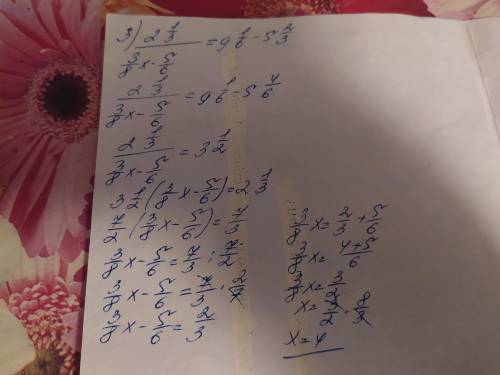 3) 2 1/3 / (3/8 x - 5/6) = 9 1/6 - 5 2/3
2 1/3 / (3/8 x - 5/6) = 9 1/6 - 5 4/6
2 1/3 / (3/8 x - 5/6) = 3 1/2
3 1/2 (3/8 x - 5/6) = 2 1/3
7/2 (3/8 x - 5/6) = 7/3
3/8 x - 5/6 = 7/3 : 7/2
3/8 x - 5/6 = 7/3 · 2/7
3/8 x - 5/6 = 2/3
3/8 x = 2/3 + 5/6
3/8 x = (4+5)/6
3/8 x = 3/2
x = 3/2 · 8/3
x = 4